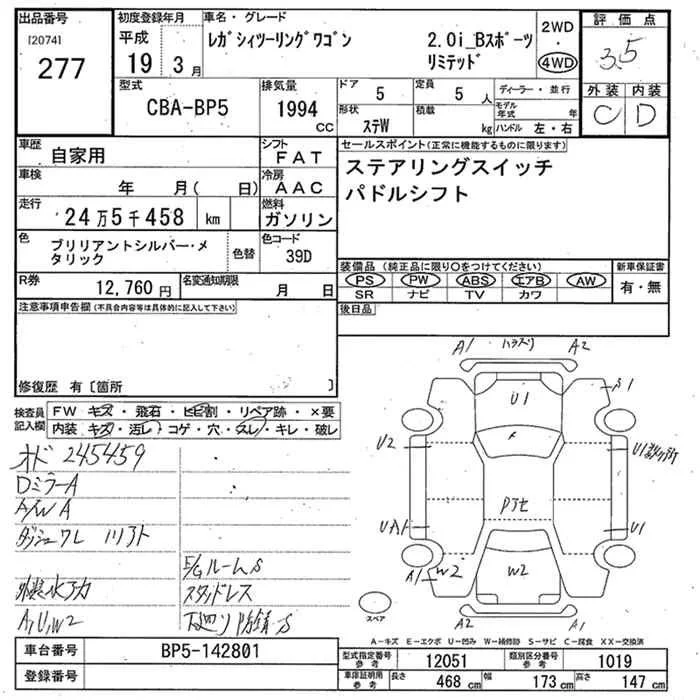 出品番号
[2074]
277
初度登録年月
平成
19 3月
車名・グレード
レガシィツーリングワゴン 2.0i_Bスポーツ
リミテッド
2WD
4WD
評価点
3.5
外装 内装
C D
型式
CBA-BP5
排気量
1994 CC
ドア 5
定員 5人
形状 ステW
積載 kg
ディーラー・並行
モデル年式 年
ハンドル 左・右
車歴
自家用
シフト
FAT
車検
年 月( 日)
冷房
AAC
走行
24万5千458 km
燃料
ガソリン
色
ブリリアントシルバー・メ
タリック
色替
色コード
39D
R券
12,760円
名変通知期限
月 日
セールスポイント(正常に機能するものに限ります)
ステアリングスイッチ
パドルシフト
装備品(純正品に限り〇をつけてください)
PS PW ABS エアB AW
SR ナビ TV カワ
新車保証書
有・無
後日品
注意事項申告欄(不具合内容等は具体的に記入して下さい)
修復歴 有〔箇所 〕
検査員
記入欄
FW キズ・飛石・ヒビ割・リペア跡・×要
内装 キズ・汚レ・コゲ・穴・スレ・キレ・破レ
オド 245459
DミラーA
A/W A
E/Gルーム S
スタッドレス
A,U,W2
下廻り防錆 S
A1
A2
U1
S1
U2
U1
UA1
U1
A1
W2
W2
A2
A1
スペア
A-キズ E-エクボ U-凹み W-補修跡 S-サビ C-腐食 XX-交換済
車台番号
BP5-142801
登録番号
型式指定番号
参考
12051
類別区分番号
参考
1019
車庫証明用
参考
長さ 468cm
幅 173cm
高さ 147cm